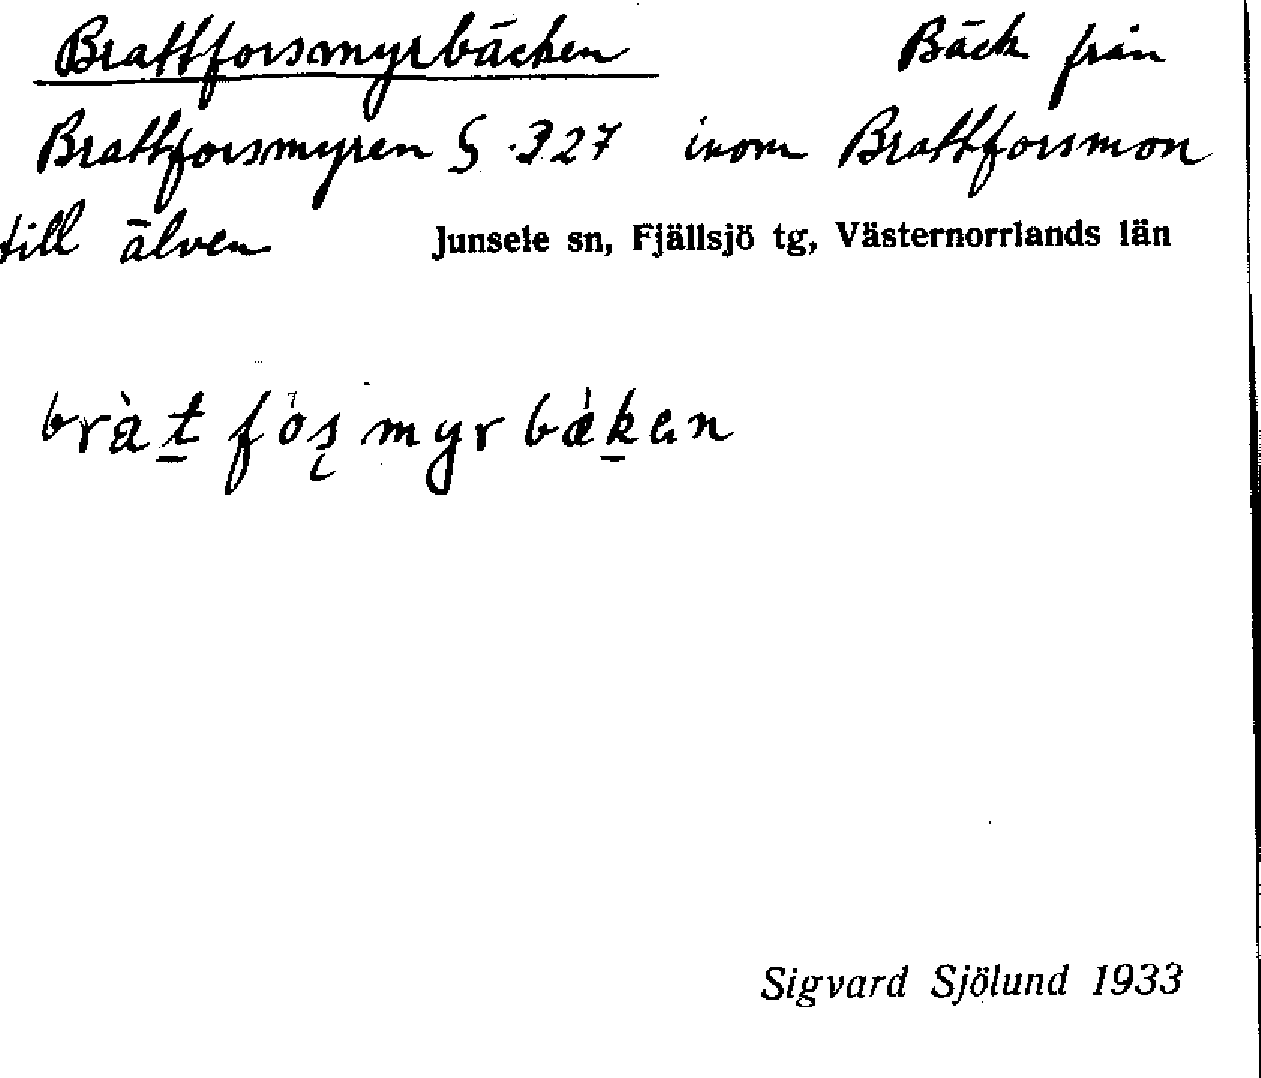 Brattforsmyrbäcken Bäck från
Brattforsmyren § 327 inom Brattforsmon
till älven Junsele sn, Fjällsjö tg, Västernorrlands län
bràt̠ fòs̨ myr bǽk̠en
Sigvard Sjölund 1933